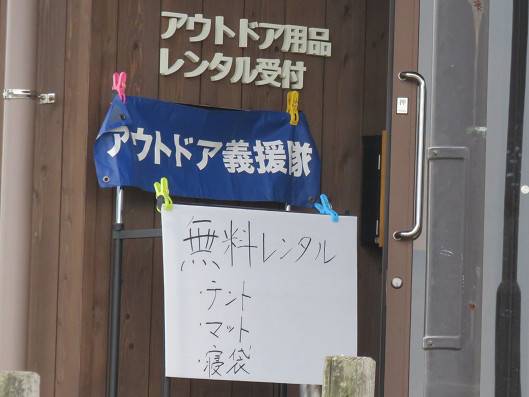 アウトドア用品
レンタル受付
押
アウトドア義援隊
無料レンタル
・テント
・マット
・寝袋